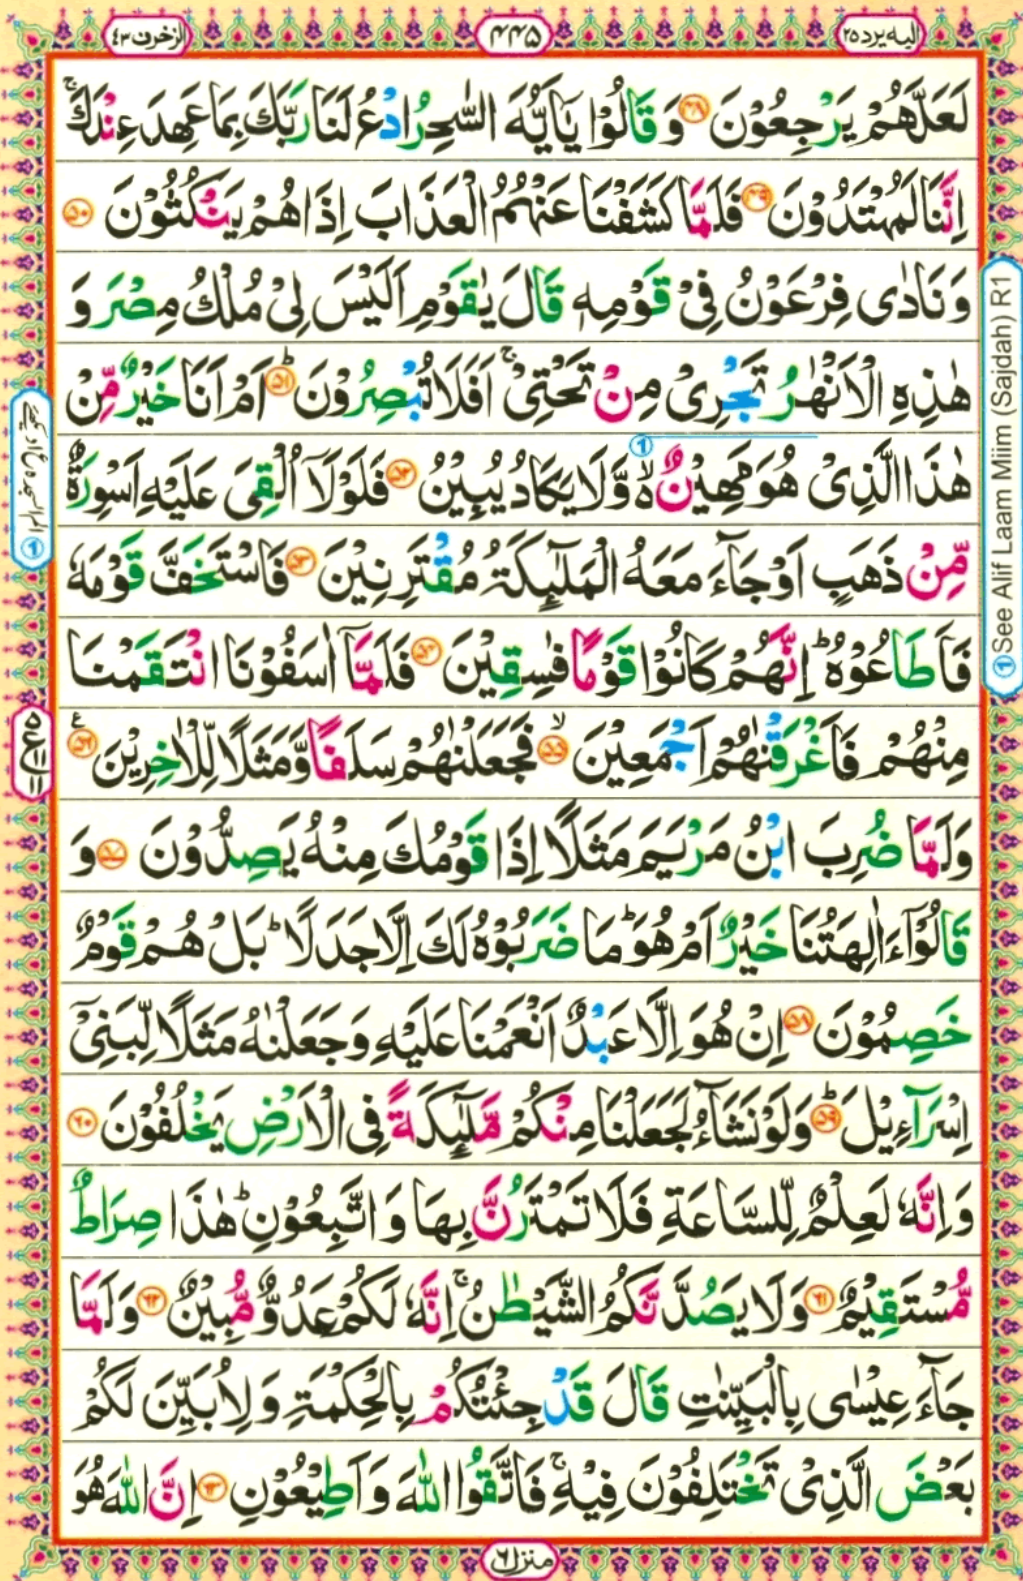 الیه یرد ٢٥
٤٤٥
الزخرف ٤٣
لَعَلَّهُمْ يَرْجِعُوْنَ ﴿٤٨﴾ وَ قَالُوْا يٰۤاَيُّهَ السّٰحِرُ ادْعُ لَنَا رَبَّكَ بِمَا عَهِدَ عِنْدَكَ ۚ
اِنَّنَا لَمُهْتَدُوْنَ ﴿٤٩﴾ فَلَمَّا كَشَفْنَا عَنْهُمُ الْعَذَابَ اِذَا هُمْ يَنْكُثُوْنَ ﴿٥٠﴾
وَ نَادٰى فِرْعَوْنُ فِىْ قَوْمِهٖ قَالَ يٰقَوْمِ اَلَيْسَ لِىْ مُلْكُ مِصْرَ وَ
هٰذِهِ الْاَنْهٰرُ تَجْرِىْ مِنْ تَحْتِىْ ۚ اَفَلَا تُبْصِرُوْنَ ﴿٥١﴾ؕ اَمْ اَنَا خَيْرٌ مِّنْ
هٰذَا الَّذِىْ هُوَ مَهِيْنٌ ۙ۬ وَّ لَا يَكَادُ يُبِيْنُ ﴿٥٢﴾ فَلَوْلَاۤ اُلْقِىَ عَلَيْهِ اَسْوِرَةٌ
مِّنْ ذَهَبٍ اَوْ جَآءَ مَعَهُ الْمَلٰٓئِكَةُ مُقْتَرِنِيْنَ ﴿٥٣﴾ فَاسْتَخَفَّ قَوْمَهٗ
فَاَطَاعُوْهُ ؕ اِنَّهُمْ كَانُوْا قَوْمًا فٰسِقِيْنَ ﴿٥٤﴾ فَلَمَّاۤ اٰسَفُوْنَا انْتَقَمْنَا
مِنْهُمْ فَاَغْرَقْنٰهُمْ اَجْمَعِيْنَ ﴿٥٥﴾ۙ فَجَعَلْنٰهُمْ سَلَفًا وَّ مَثَلًا لِّلْاٰخِرِيْنَ ﴿٥٦﴾ع
وَ لَمَّا ضُرِبَ ابْنُ مَرْيَمَ مَثَلًا اِذَا قَوْمُكَ مِنْهُ يَصِدُّوْنَ ﴿٥٧﴾ وَ
قَالُوْۤا ءَاٰلِهَتُنَا خَيْرٌ اَمْ هُوَ ؕ مَا ضَرَبُوْهُ لَكَ اِلَّا جَدَلًا ؕ بَلْ هُمْ قَوْمٌ
خَصِمُوْنَ ﴿٥٨﴾ اِنْ هُوَ اِلَّا عَبْدٌ اَنْعَمْنَا عَلَيْهِ وَ جَعَلْنٰهُ مَثَلًا لِّبَنِىْۤ
اِسْرَآءِيْلَ ﴿٥٩﴾ؕ وَ لَوْ نَشَآءُ لَجَعَلْنَا مِنْكُمْ مَّلٰٓئِكَةً فِى الْاَرْضِ يَخْلُفُوْنَ ﴿٦٠﴾
وَ اِنَّهٗ لَعِلْمٌ لِّلسَّاعَةِ فَلَا تَمْتَرُنَّ بِهَا وَ اتَّبِعُوْنِ ؕ هٰذَا صِرَاطٌ
مُّسْتَقِيْمٌ ﴿٦١﴾ وَ لَا يَصُدَّنَّكُمُ الشَّيْطٰنُ ۚ اِنَّهٗ لَكُمْ عَدُوٌّ مُّبِيْنٌ ﴿٦٢﴾ وَ لَمَّا
جَآءَ عِيْسٰى بِالْبَيِّنٰتِ قَالَ قَدْ جِئْتُكُمْ بِالْحِكْمَةِ وَ لِاُبَيِّنَ لَكُمْ
بَعْضَ الَّذِىْ تَخْتَلِفُوْنَ فِيْهِ ۚ فَاتَّقُوا اللّٰهَ وَ اَطِيْعُوْنِ ﴿٦٣﴾ اِنَّ اللّٰهَ هُوَ
منزل ٦
① See Alif Laam Miim (Sajdah) R1